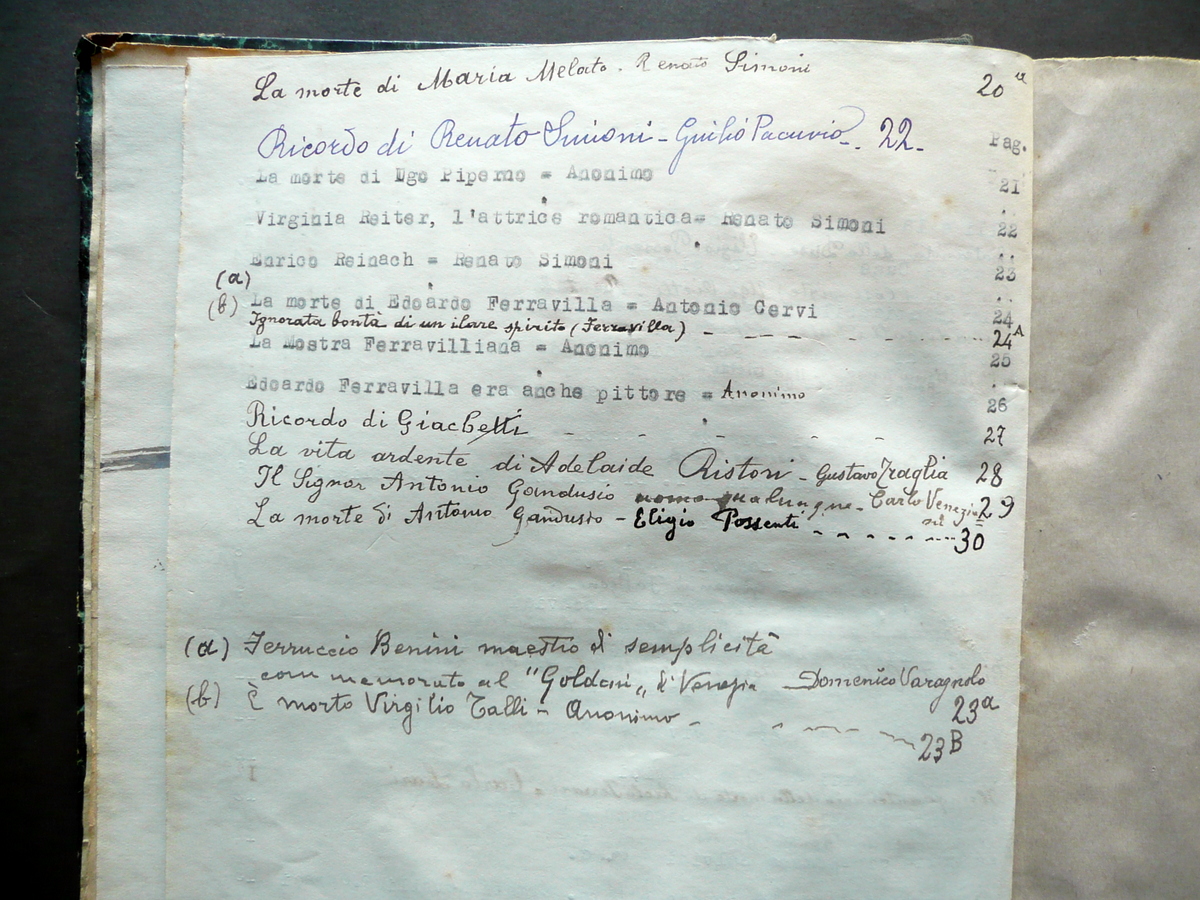 La morte di Maria Melato. Renato Simoni 20ª
Ricordo di Renato Simoni - Giulio Pacuvio -. 22-
Pag.
La morte di Ugo Piperno = Anonimo 21
Virginia Reiter, l'attrice romantica= Renato Simoni 22
Enrico Reinach = Renato Simoni 23
(a)
(b) La morte di Edoardo Ferravilla = Antonio Cervi 24
Ignorata bontà di un ilare spirito (Ferravilla) - - - - - - - - 24A
La Mostra Ferravilliana = Anonimo 25
Edoardo Ferravilla era anche pittore = Anonimo 26
Ricordo di Giachetti - - - - - 27
La vita ardente di Adelaide Ristori - Gustavo Traglia 28
Il Signor Antonio Gandusio uomo qualunque - Carlo Veneziani 29
La morte di Antonio Gandusio - Eligio Possenti - - - - - - - 30
(a) Ferruccio Benini maestro di semplicità
commemorato al "Goldoni" di Venezia - Domenico Varagnolo 23ª
(b) È morto Virgilio Talli - Anonimo - - - - - - 23B